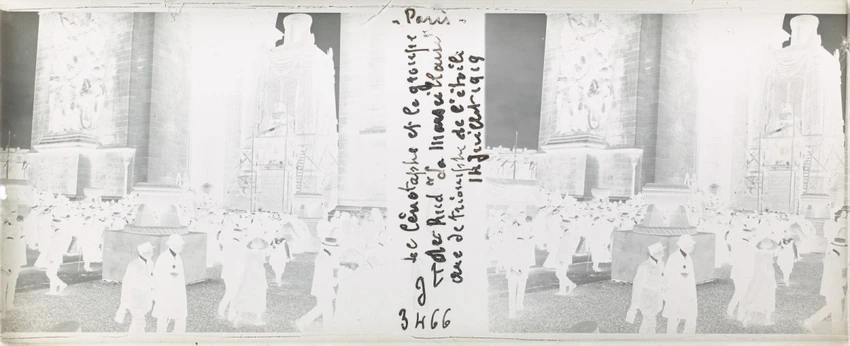 - Paris -
Le Cénotaphe et le groupe
de Rud "La Marseillaise"
arc de triomphe de l'étoile
14 Juillet 1919
3466